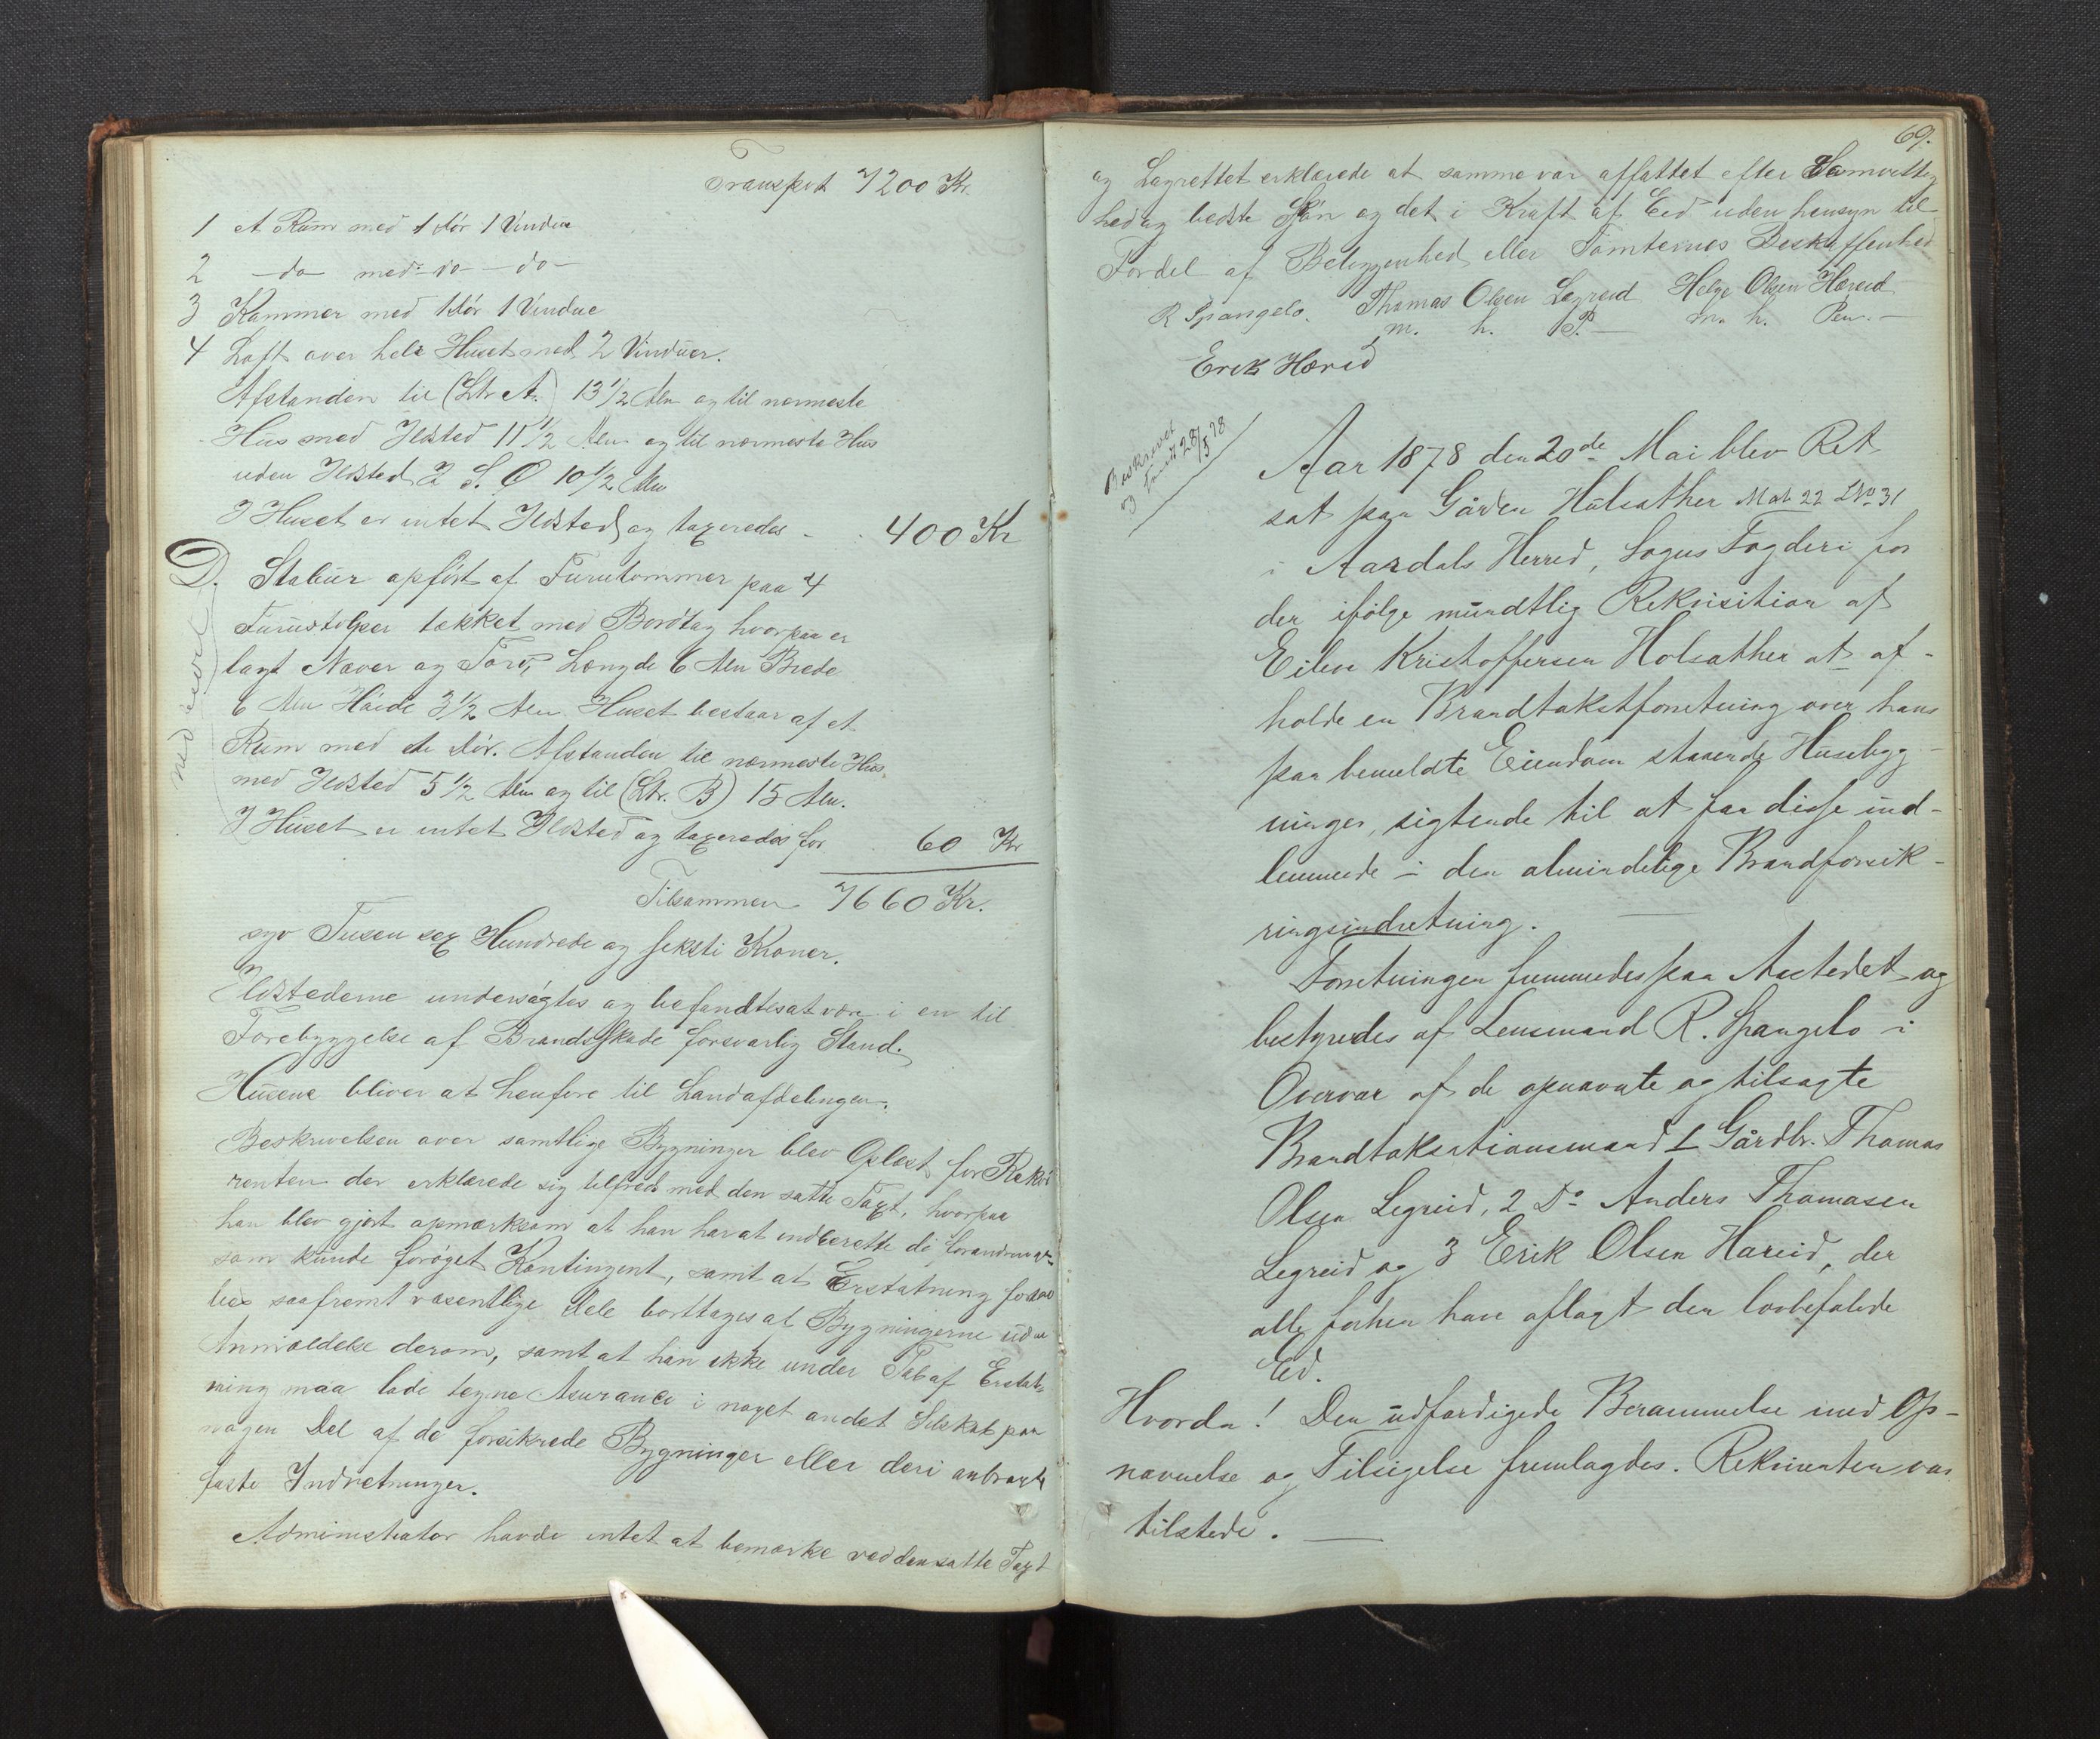 Transport 7200 Kr.
1 et Rum med 1 Dør 1 Vindue
2 - do - med - do - do -
3 Kammer med 1 Dør 1 Vindue
4 Loft over hele Huset med 2 Vinduer.
Afstanden til (Ltr A.) 13 1/2 Alen og til nærmeste
Hus med Ildsted 11 1/2 Alen og til nærmeste Hus
uden Ildsted I S. Ø 10 1/2 Alen
I Huset er intet Ildsted og taxeredes - . 400 Kr
D. Stabur opført af Furutømmer paa 4
Furustolper tækket med Bordtag hvorpaa er
lagt Næver og Torv, Længde 6 Alen Brede
6 Alen Høide 3 1/2 Alen Huset bestaar af et
Rum med en Dør. Afstanden til nærmeste Hus
med Ildsted 5 1/2 Alen og til (Ltr. B) 15 Alen.
I Huset er intet Ildsted og taxeredes for . 60 Kr
Tilsammen 7660 Kr.
syv Tusen sex Hundrede og seksti Kroner.
Ildstederne undersøgtes og befandtes at være i en til
Forebyggelse af Brandsskade forsvarlig Stand.
Husene bliver at henføre til Landafdelingen.
Beskrivelsen over samtlige Bygninger blev Oplæst for Rekvi
renten der erklærede sig tilfreds med den satte Taxt, hvorpaa
han blev gjort opmærksom at han har at indberette de forandringer
som kunde forøget Kontingent, samt at Erstatning forta
bes saafremt væsentlige Dele borttages at Bygningerne uden
Anmældelse derom, samt at han ikke under Tab af Erstat-
ning maa lade tegne Assurance i noget andet Selskab paa
nogen Del af de forsikrede Bygninger eller deri anbragte
faste Indretninger.
Administrator havde intet at bemærke ved den satte Taxt
69.
og Lagrettet erklærede at samme var affattet efter Samvittig
hed og bedste Skjøn og det i Kraft af Eed uden hensyn til
Fordel af Beliggenhed eller Tomternes Beskaffenhed
R Spangelo. Thomas Olsen Legreid Helge Olsen Hæreid
m. h. P. — m. h. Pen. —
Erik Hæreid
Beskrevet
og 28/5 78
Aar 1878 den 20de Mai blev Ret
sat paa Gården Hulsæther Mat 22 LNo 31
i Aardals Herred, Sogns Fogderi for
der ifølge mundtlig Rekvisition af
Eileve Kristoffersen Holsæther at af-
holde en Brandtakstforretning over hans
paa bemeldte Eiendom staaende Husebyg-
ninger, sigtende til at faa disse ind-
lemmede i den almindelige Brandforsik-
ringsindretning.
Forretningen fremmedes paa Aastedet og
bestyredes af Lensmand R. Spangelo i
Overvær af de opnævnte og tilsagte
Brandtaksationsmænd 1 Gårdbr. Thomas
Olsen Legreid, 2 Do Anders Thomasen
Legreid og 3 Erik Olsen Hæreid, der
alle forhen have aflagt den lovbefalede
Ed.
Hvorda! Den udfærdigede Berammelse med Op-
nævnelse og Tilsigelse fremlagdes. Rekvirenten var
tilstede.